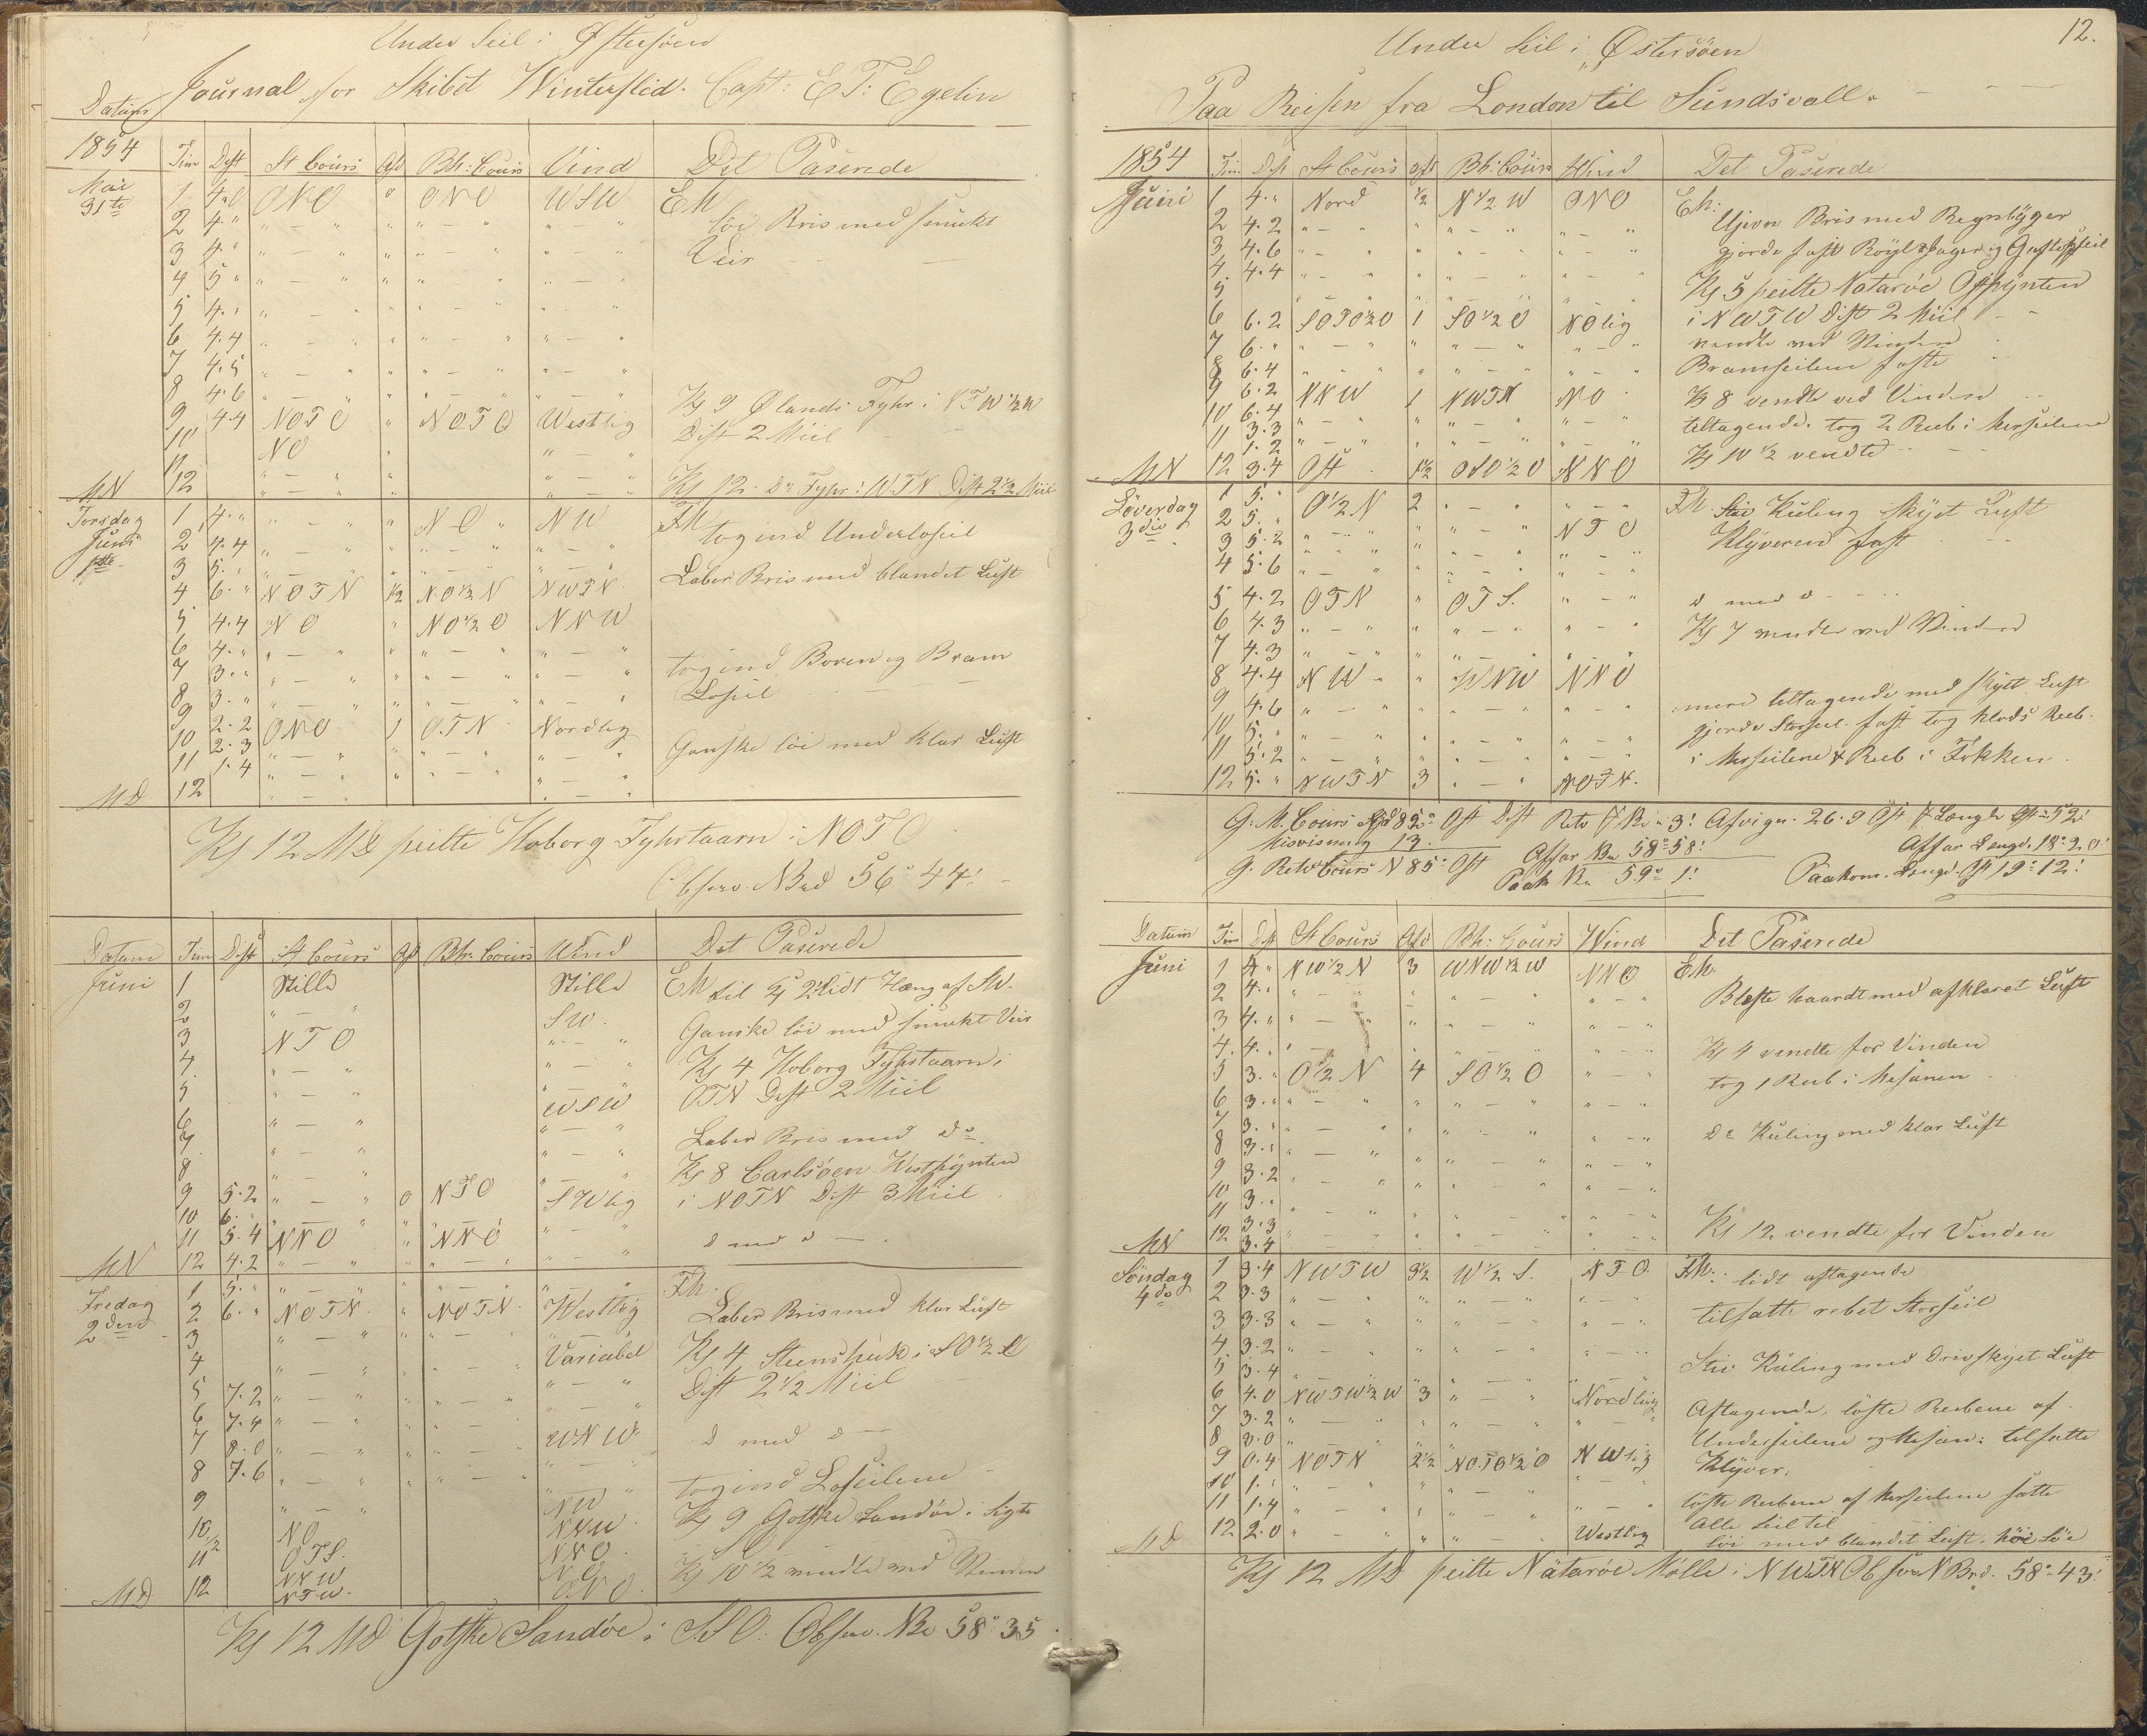 Under Seil i Østersøen
Journal for Skibet Vinterflid. Capt: E T: Egelin
Datum
1854 Tim Dist St Cours Afd Bh: Cours Vind Det Paserede
Mai 31te 1 4.0 ONO " ONO WSW EM
2 4 " " — " " " — " " — " löi Bris med smukt
3 4. " " — " " " — " " — " Veir
4 5 " " — " " " — " " — "
5 4. " " — " " " — " " — "
6 4.4 " — " " " — " " — "
7 4.5 " — " " " — " " — "
8 4.6 " — " " " — " " — " Kl 9 Ølands Fyhr i NTW ½ W
9 4.4 NOTO " NOTO Westlig Dist 2 Miil
10 NO " " — "
11 " — " " " — "
MN 12 " — " " " — " Kl 12 Do Fyhr i WTN Dist 2½ Miil
Torsdag Juni 1ste 1 4. " " — " " NO " NW FM
2 4.4 " — " " " — " " — " tog ind Underlæseil
3 5. " " — " " " — " " — "
4 6. " NOTN ½ NO½N NWTN Laber Bris med blandet Luft
5 4.4 NO " NO½O NNW
6 4. " " — " " " — " " — "
7 3. " " — " " " — " " — " tog ind Boven og Bram
8 3. " " — " " " — " " — " Læseil
9 2.2 ONO 1 O.T.N Nordlig
10 2.3 " — " " " — " " — " Ganske löi med klar Luft
11 1.4 " — " " " — " " — "
MD 12 " — " " — "
Kl 12 MD peilte Hoborg Fyhrtaarn i NOTO
Observ. NBrd 56° 44'
Datum Tim Dist St Cours Afd Bh: Cours Vind Det Paserede
Juni 1 Stille Stille EM til
2 " — " SW. Ganske löi med smukt Veir
3 NTO " — "
4 " — " " — " Kl 4 Hoborg Fyhrtaarn i
5 " — " WSW OTN Dist 2 Miil
6 " — " " — "
7 " — " " — " Laber Bris med do
8 " — " " — " Kl 8 Carlsöen Westpynten
9 5.2 " — " 0 NTO SWlig i NOTN Dist 3 Miil
10 6. " " — " " " — " " — "
11 5.4 NNO " NNO " — " d med d —
MN 12 4.2 " — " " " — " " — "
Fredag 2den 1 5. " " — " " " — " " — " FM.
2 6. " NOTN " NOTN Westlig Laber Bris med klar Luft
3 " — " " " — " " — "
4 " — " " " — " Variabel Kl 4 Steenshuk i SO½
5 7.2 " — " " " — " " — " Dist 2½ Miil
6 7.4 " — " " " — " " — "
7 8.0 " — " " " — " WNW d med d —
8 7.6 " — " " " — " " — "
9 " — " NW tog ind Læseilene
10½ NO NNW Kl 9 Gotske Sandöe i Sigte
11 OTS. NNO
MD 12 NNW NTW. NO ONO. Kl 10½ vendte ved Vinden
Kl 12 MD Gotske Sandöe i SSO. Observ. NBr 58° 35
12.
Under Seil i Østersöen
Paa Reisen fra London til Sundsvall.
1854 Tim Dis St Cours Afd Bh: Cours Wind Det Paserede
Juni 1 4. " Nord ½ N½W ONO EM:
2 4.2 " — " " " — " " — " Ujevn Bris med Regnbyger
3 4.6 " — " " " — " " — " gjorde fast Röyl
4 4.4 " — " " " — " " — "
5 " — " " " — " " — " Kl 5 peilte Nataröe Ostpynten
6 6.2 SOTO½O 1 SO½O NOlig i NWTW Dist 2 Miil
7 6. " " — " " " — " " — " vendte ved Vinden
8 6.4 " — " " " — " " — " Bramseilene faste
9 6.2 NNW 1 NWTN NO Kl 8 vendte ved Vinden
10 6.4 " — " " " — " " — " tiltagende. tog 2 Reeb i Merseilene
11 3.3 1.2 " — " " " — " " — " Kl 10½ vendte
MN 12 3.4 Ost 1½ OSO½O NNO
Löverdag 3die 1 5. " O½N 2 " — " " — " FM. Stiv Kuling skyet Luft
2 5. " " — " " " — " NTO Klyveren fast
3 5.2 " — " " " — " " — "
4 5.6 " — " " " — " " — "
5 4.2 OTN " OTS. " — " d med d
6 4.3 " — " " " — " " — " Kl 7 vendte ved Vinden
7 4.3 " — " " " — " " — "
8 4.4 NW " WNW NNO
9 4.6 " — " " " — " " — " mere tiltagende med skyet Luft
10 5. " " — " " " — " " — " gjorde Storseil fast tog Klods Reeb.
11 5.2 " — " " " — " " — " i Merseilene & Reeb i Fokken
12 5. " NWTN 3 " — " NOTN.
G. M. Cours Ost Dist Retv Br 3' Afvign. 26.9 Ost Længde Ost 52'
Misvisning 13. Affar Br 58° 58' Affar Længd. 18° 20'
G. Retv Cours N 85° Ost Paak Br 59° 1' Paakom. Længd. Ost 19° 12'
Datum Tim Dis St Cours Afd Bh: Cours Wind Det Paserede
Juni 1 4. " NW½N 3 WNW½W NNO EM.
2 4. " " — " " " — " " — " Bleste haardt med afklaret Luft
3 4. " " — " " " — " " — "
4 4. " " — " " " — " " — " Kl 4 vendte for Vinden
5 3. " O½N 4 SO½O " — " tog 1 Reeb i Mesanen
6 3. " " — " " " — " " — "
7 3. " " — " " " — " " — " do Kuling med klar Luft
8 3. " " — " " " — " " — "
9 3.2 " — " " " — " " — "
10 3. " " — " " " — " " — "
11 3.3 " — " " " — " " — " Kl 12 vendte for Vinden
MN 12 3.4 " — " " " — " " — "
Söndag 4de 1 3.4 NWTW 3½ W½S. NTO. FM: lidt aftagende
2 3.3 " — " " — " " — " tilsatte rebet Storseil
3 3.3 " — " " " — " " — "
4 3.2 " — " " " — " " — " Stiv Kuling med Drivskyet Luft
5 3.4 " — " " " — " " — "
6 4.0 NWTW½W 3 " — " Nordlig Aftagende, löste Reebene af
7 3.2 " — " " " — " " — " Underseilene og Mesan: tilsatte
8 3.0 " — " " " — " " — " Klyver.
9 0.4 NOTN 2½ NOTO½O NWlig
10 1. " " — " " " — " " — " löste Reebene af Merseilene satte
11 1.4 " — " " " — " " — " Alle Seil til
MD 12 2.0 " — " " " — " Westlig löi med blandet Luft. höi Söe
Kl 12 MD peilte Nätaröe Mölle i NWTN Observ NBrd. 58° 43'